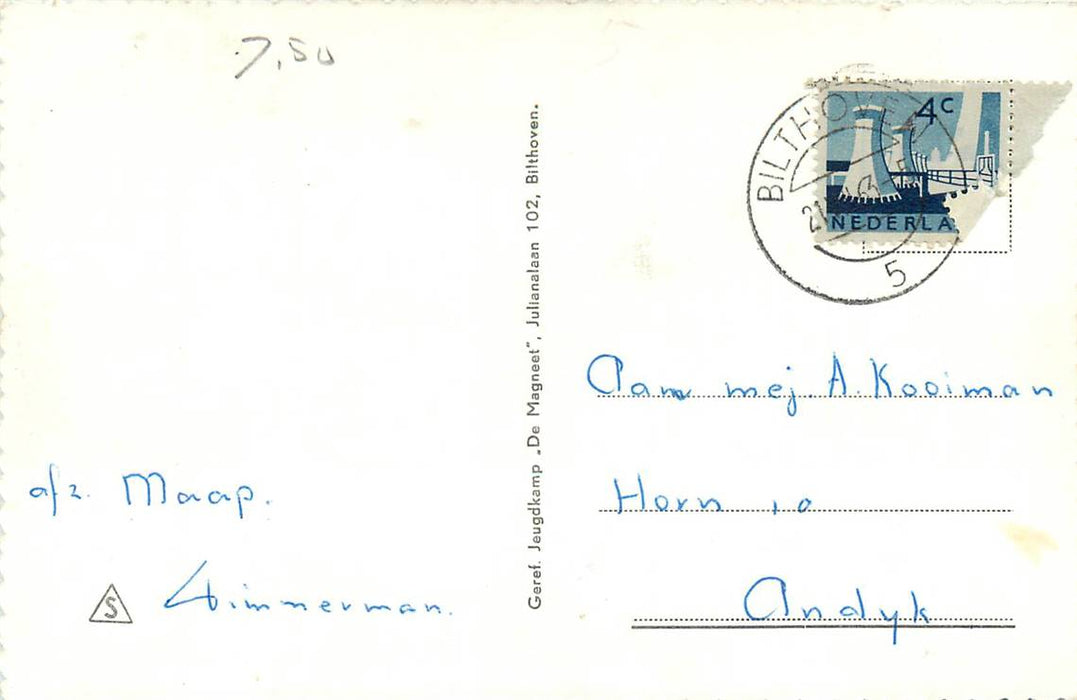 7,50
BILTHOVEN
4c
NEDERLA
5
Geref. Jeugdkamp „De Magneet", Julianalaan 102, Bilthoven.
Aan mej. A. Kooiman
Horn 10
Andyk
afz. Maap.
Zimmerman.
S